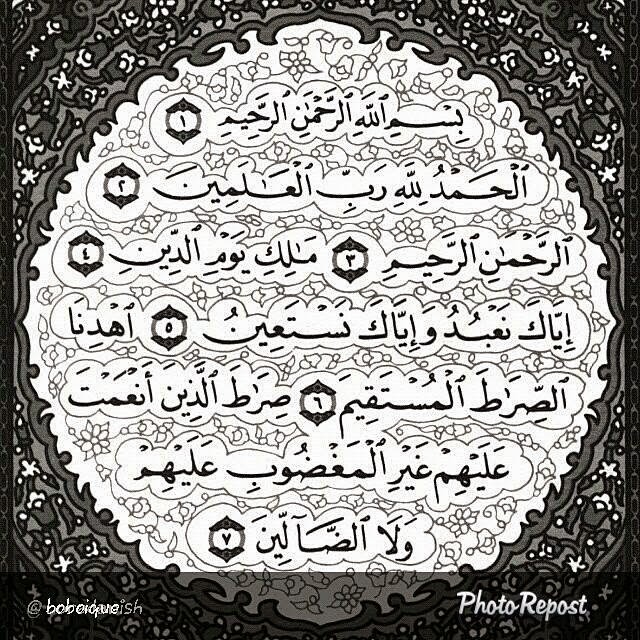 بِسْمِ ٱللَّهِ ٱلرَّحْمَٰنِ ٱلرَّحِيمِ ١
ٱلْحَمْدُ لِلَّهِ رَبِّ ٱلْعَٰلَمِينَ ٢
ٱلرَّحْمَٰنِ ٱلرَّحِيمِ ٣ مَٰلِكِ يَوْمِ ٱلدِّينِ ٤
إِيَّاكَ نَعْبُدُ وَإِيَّاكَ نَسْتَعِينُ ٥ ٱهْدِنَا
ٱلصِّرَٰطَ ٱلْمُسْتَقِيمَ ٦ صِرَٰطَ ٱلَّذِينَ أَنْعَمْتَ
عَلَيْهِمْ غَيْرِ ٱلْمَغْضُوبِ عَلَيْهِمْ
وَلَا ٱلضَّآلِّينَ ٧
PhotoRepost